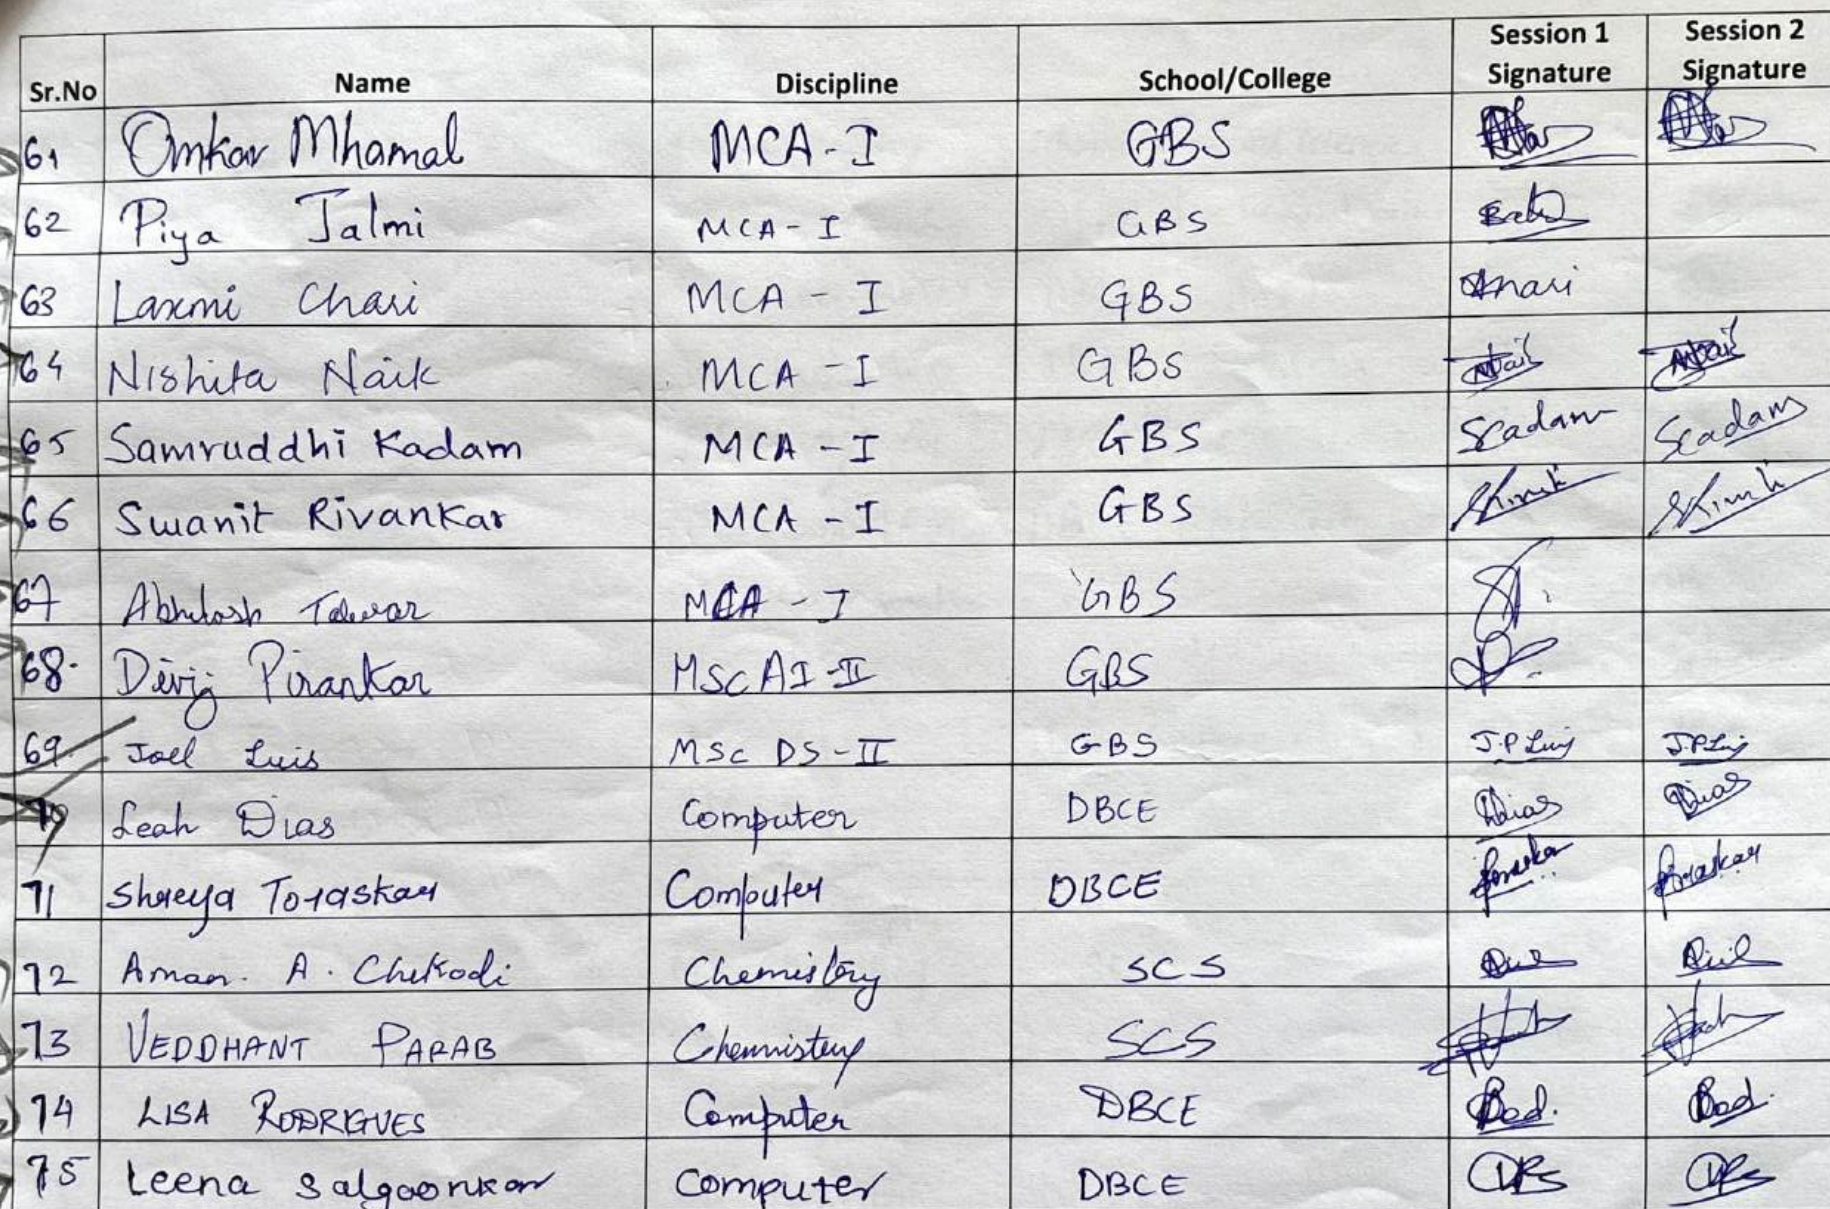 Sr.No Name Discipline School/College Session 1 Signature Session 2 Signature
61 Omkar Mhamal MCA-I GBS
62 Piya Jalmi MCA-I GBS
63 Laxmi Chari MCA-I GBS
64 Nishita Naik MCA-I GBS Naik Naik
65 Samruddhi Kadam MCA-I GBS Skadam Skadam
66 Swanit Rivankar MCA-I GBS
67 Abhilash MCA-I GBS
68. Divij Pirankar MSc AI-II GBS
69. Joel Luis MSc DS-II GBS J.P Luis J.P Luis
70 Leah Dias Computer DBCE Dias Dias
71 Shreya Toraskar Computer DBCE
72 Aman. A. Chikodi Chemistry SCS
73 VEDDHANT PARAB Chemistry SCS
74 LISA RODRIGUES Computer DBCE
75 Leena Salgaonkar Computer DBCE